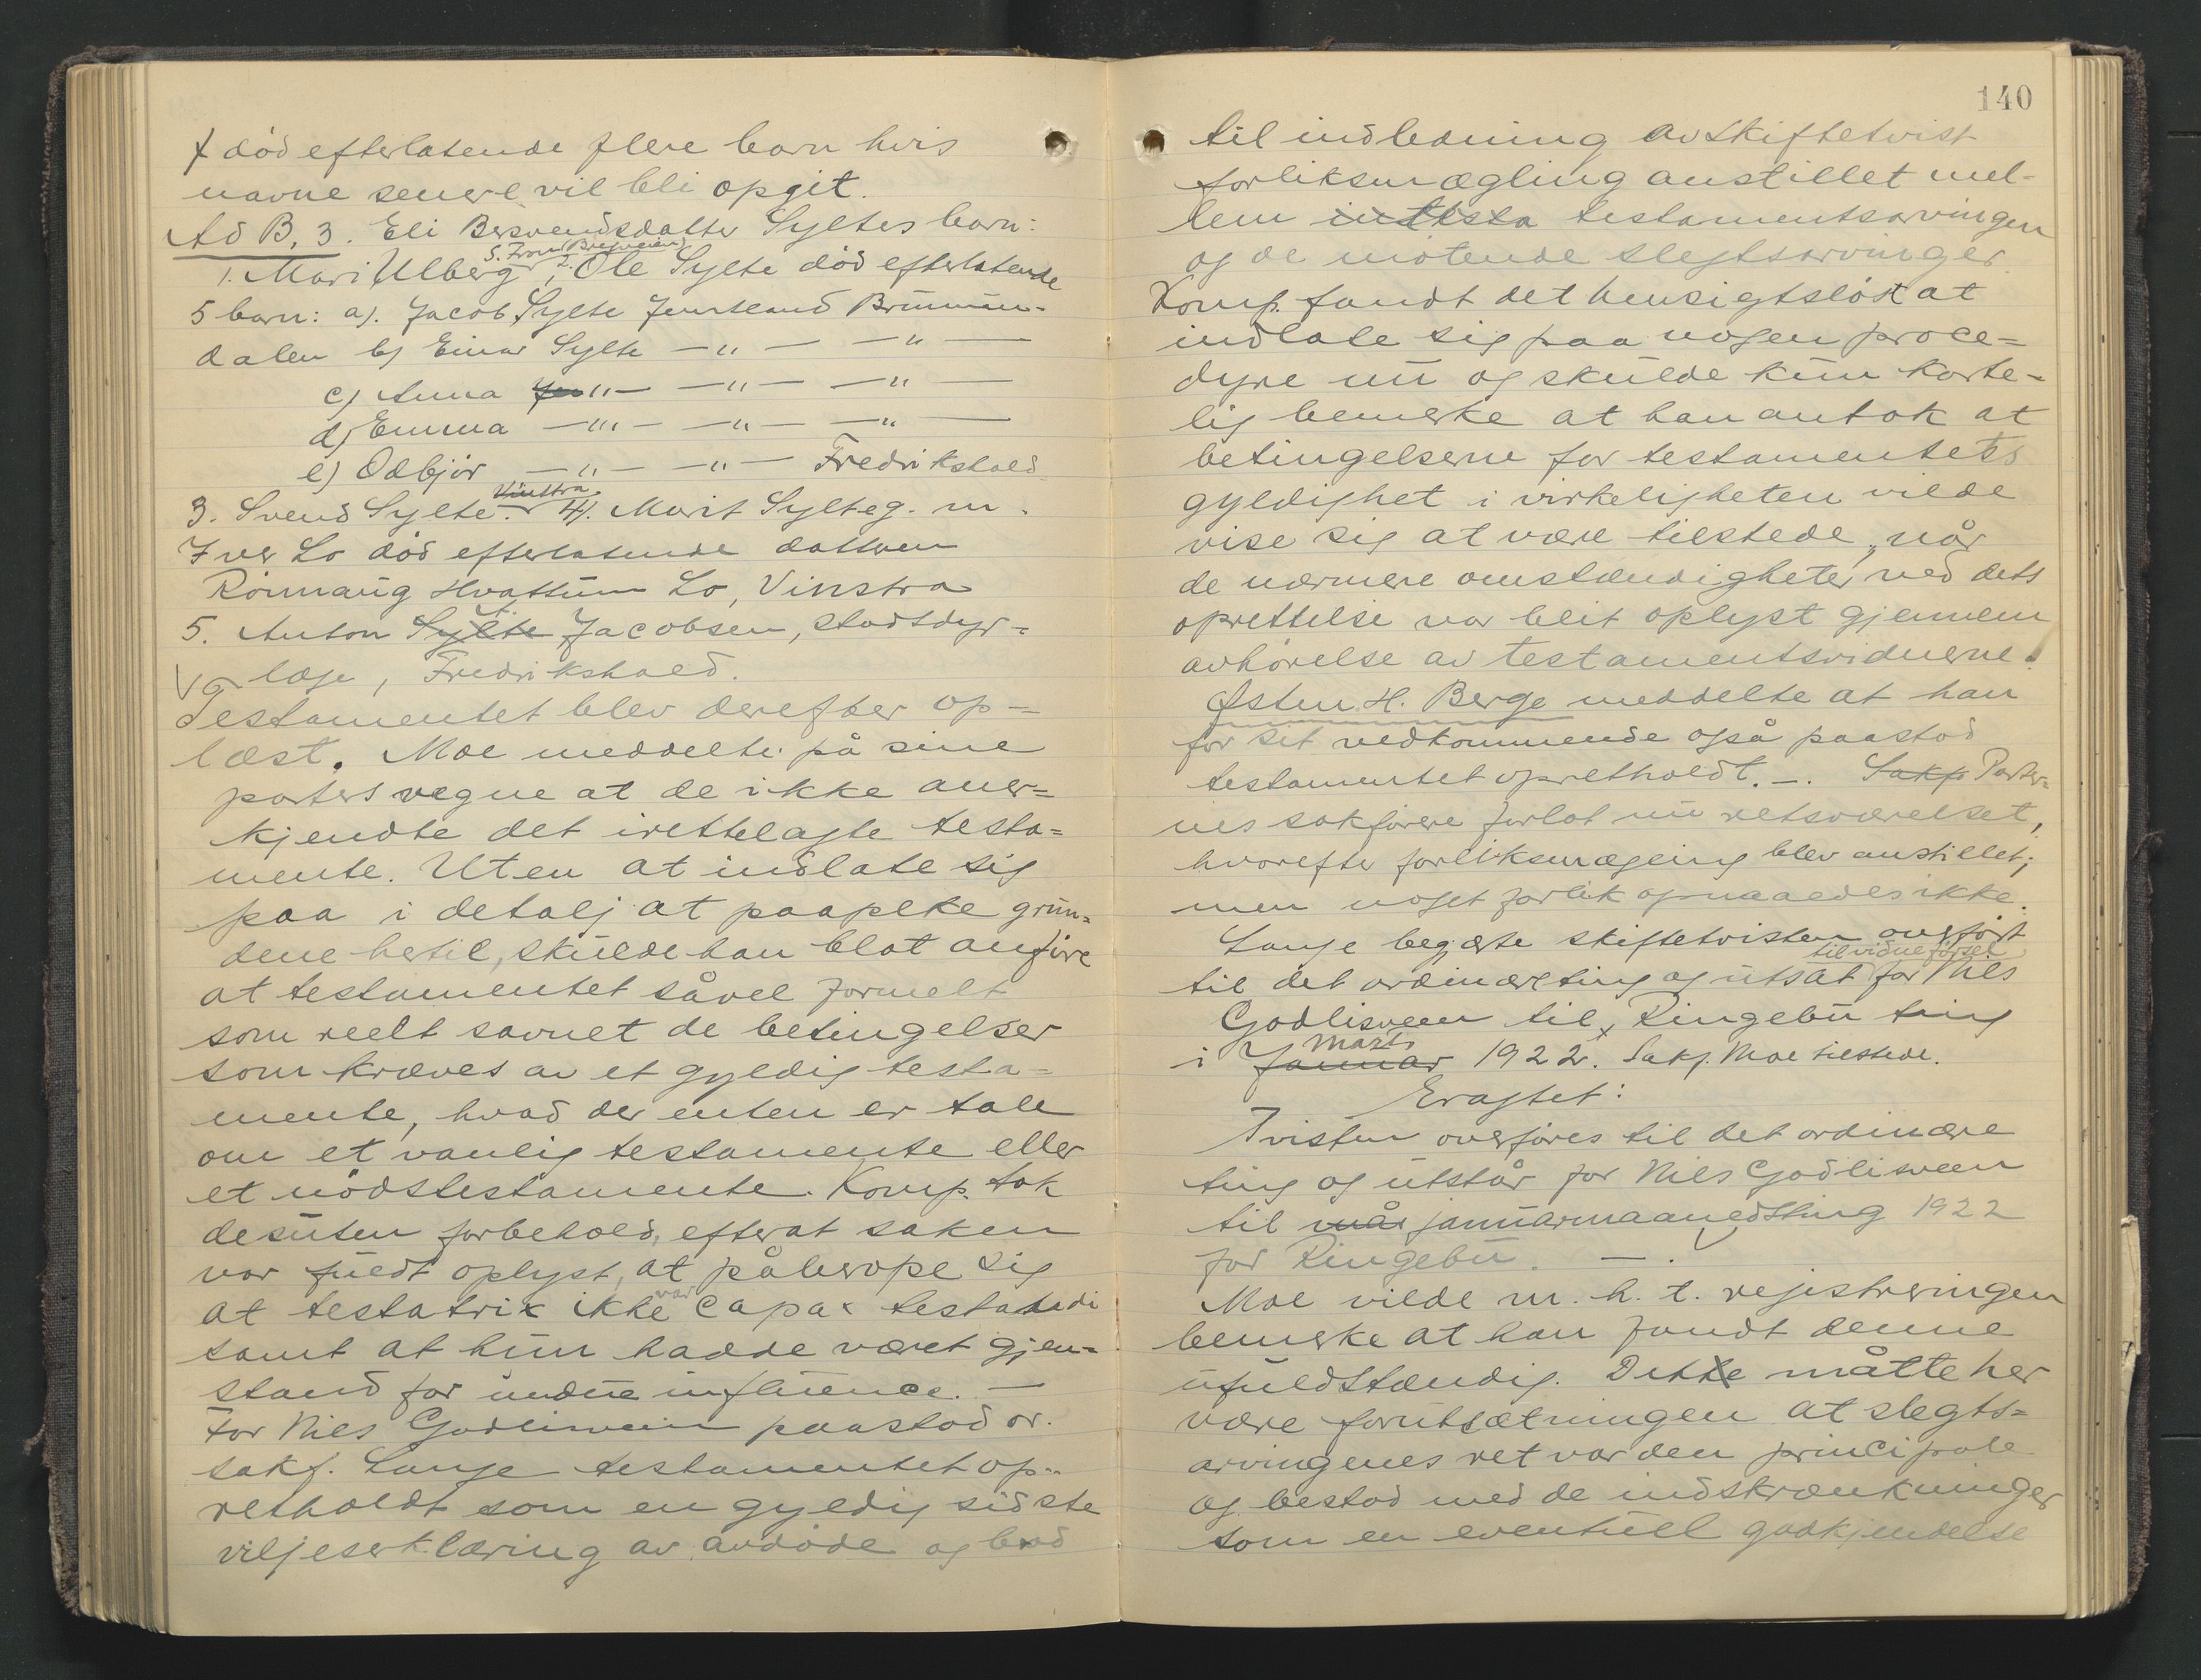 død efterlatende flere barn hvis
navne senere vil bli opgit.
Ad B, 3. Eli Bersvendsdatter Syltes barn:
S. Fron (Brejveien)
1. Mari Ulberg, 2. Ole Sylte død efterlatende
5 barn: a). Jacob Sylte Jemtland Brummun-
dalen b) Einar Sylte —"— —"—
c) Anna —"— —"— —"—
d) Emma —"— —"— —"—
e) Odbjør —"— —"— Fredrikshald
Vinstra
3. Svend Sylte. 4). Marit Sylte g. m.
Iver Lo død efterlatende datteren
Rønnaug Hvattum Lo, Vinstra
5. Anton Sylte Jacobsen, stadsdyr-
læge, Fredrikshald.
Testamentet blev derefter op-
læst. Moe meddelte på sine
parters vegne at de ikke aner-
kjendte det irettelagte testa-
mente. Uten at indlate sig
paa i detalj at paapeke grun-
dene hertil, skulde han blot anføre
at testamentet såvel formelt
som reelt savnet de betingelser
som kræves av et gyldig testa-
mente, hvad der enten er tale
om et vanlig testamente eller
et nødstestamente. Komp. tok
desuten forbehold, efterat saken
var fuldt oplyst, at påberope sig
at testatrix ikke var capax testandi
samt at hun hadde været gjen-
stand for undue influence. —
For Nils Godlisveen paastod or.
sakf. Lange testamentet op-
retholdt som en gyldig sidste
viljeserklæring av avdøde og bad
140
til indledning av skiftetvist
forliksmægling anstillet mel-
lem testamentsarvingen
og de møtende slegtsarvinger.
Komp. fandt det hensigtsløst at
indlate sig paa nogen proce-
dyre nu og skulde kun korte-
lig bemerke at han antok at
betingelserne for testamentets
gyldighet i virkeligheten vilde
vise sig at være tilstede, når
de nærmere omstændigheter ved dets
oprettelse var bleit oplyst gjennem
avhørelse av testamentsvidnerne.
Østen H. Berge meddelte at han
for sit vedkommende også paastod
testamentet opretholdt. —. Sakf. Parter-
nes sakførere forlot nu retsværelset,
hvorefter forliksmægling blev anstillet;
men noget forlik opnaaedes ikke.
Lange begjærte skiftetvisten overført
til vidneførsel
til det ordinære ting og utsat for Nils
Godlisveen til Ringebu ting
Marts
i Januar 1922. Sakf. Moe tilstede.
Eragtet:
Tvisten overføres til det ordinære
ting og utstår for Nils Godlisveen
til mår januarmaanedsting 1922
for Ringebu. —.
Moe vilde m. h. t. registreringen
bemerke at han fandt denne
ufuldstændig. Dette måtte her
være forutsætningen at slegts-
arvingenes ret var den principale
og bestod med de indskrænkninger
som en eventuell godkjendelse